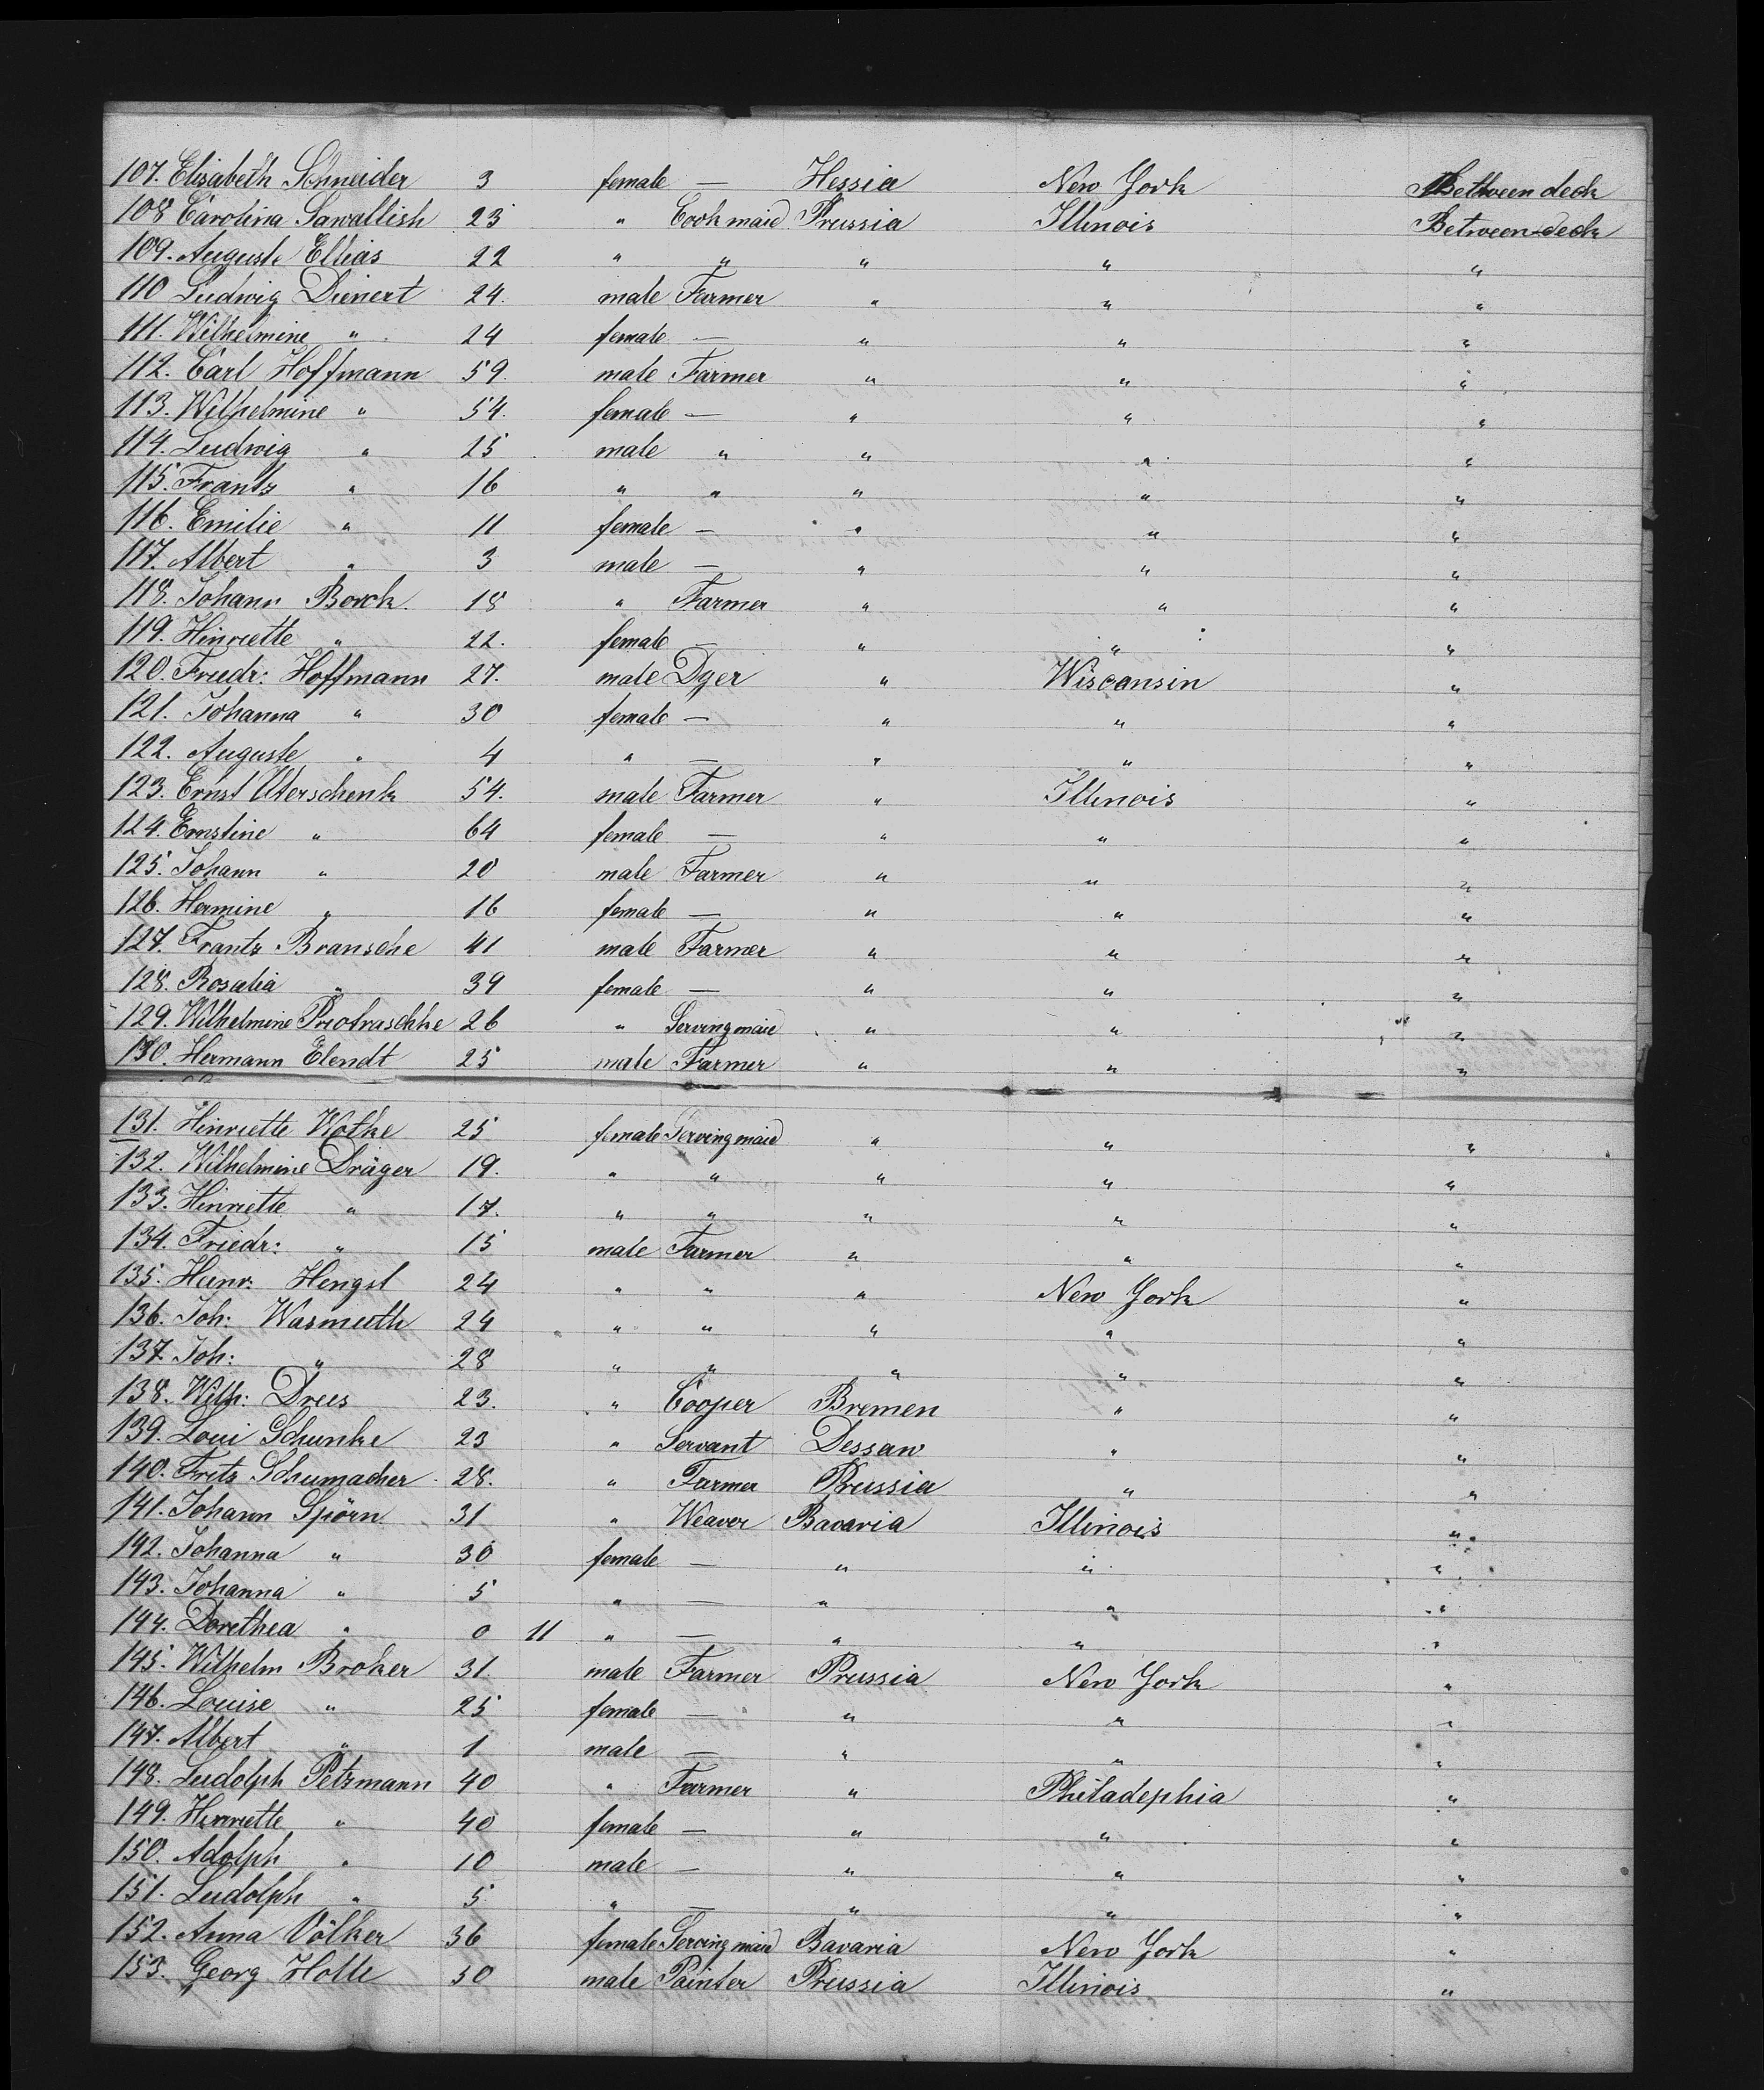 107. Elisabeth Schneider 3 female — Hessia New York Between deck
108 Carolina Sawallish 23 " Cookmaid Prussia Illinois Between deck
109. Auguste Ellias 22 " " " " "
110 Ludwig Dienert 24. male Farmer " " "
111. Wilhelmine " 24 female — " " "
112. Carl Hoffmann 59. male Farmer " " "
113. Wilhelmine " 54. female — " " "
114. Ludwig " 25 male " " " "
115. Frantz " 16 " " " " "
116. Emilie " 11 female — " " "
117. Albert " 3 male — " " "
118. Johann Borck 18 " Farmer " " "
119. Hinriette " 22. female — " " "
120. Friedr: Hoffmann 27. male Dyer " Wisconsin "
121. Johanna " 30 female — " " "
122. Auguste " 4 " — " " "
123. Ernst Uterschenk 54. male Farmer " Illinois "
124. Ernstine " 64 female — " " "
125. Johann " 20 male Farmer " " "
126. Hermine " 16 female — " " "
127. Frantz Bransche 41 male Farmer " " "
128. Rosalia " 39 female — " " "
129. Wilhelmine 26 " Servingmaid " " "
130. Hermann Elendt 25 male Farmer " " "
131. Hinriette Wothe 25 female Servingmaid " " "
132. Wilhelmine Dräger 19. " " " " "
133. Hinriette " 17. " " " " "
134. Friedr: " 15 male Farmer " " "
135. Heinr: Hengst 24 " " " New York "
136. Joh: Wasmuth 24 " " " " "
137. Joh: " 28 " " " " "
138. Wilh: Drees 23. " Cooper Bremen " "
139. Loui Schunke 23 " Servant Dessaw " "
140. Fritz Schumacher 28. " Farmer Prussia " "
141. Johann Spörn 31 " Weaver Bavaria Illinois "
142. Johanna " 30 female — " " "
143. Johanna " 5 " — " " "
144. Dorethea " 0 11 " — " " "
145. Wilhelm Broker 31. male Farmer Prussia New York "
146. Louise " 25 female — " " "
147. Albert " 1 male — " " "
148. Ludolph Petzmann 40 " Farmer " Philadephia "
149. Hinriette " 40 female — " " "
150. Adolph " 10 male — " " "
151. Ludolph " 5 " — " " "
152. Anna Völker 36 female Serving maid Bavaria New York "
153. Georg Holle 30 male Painter Prussia Illinois "